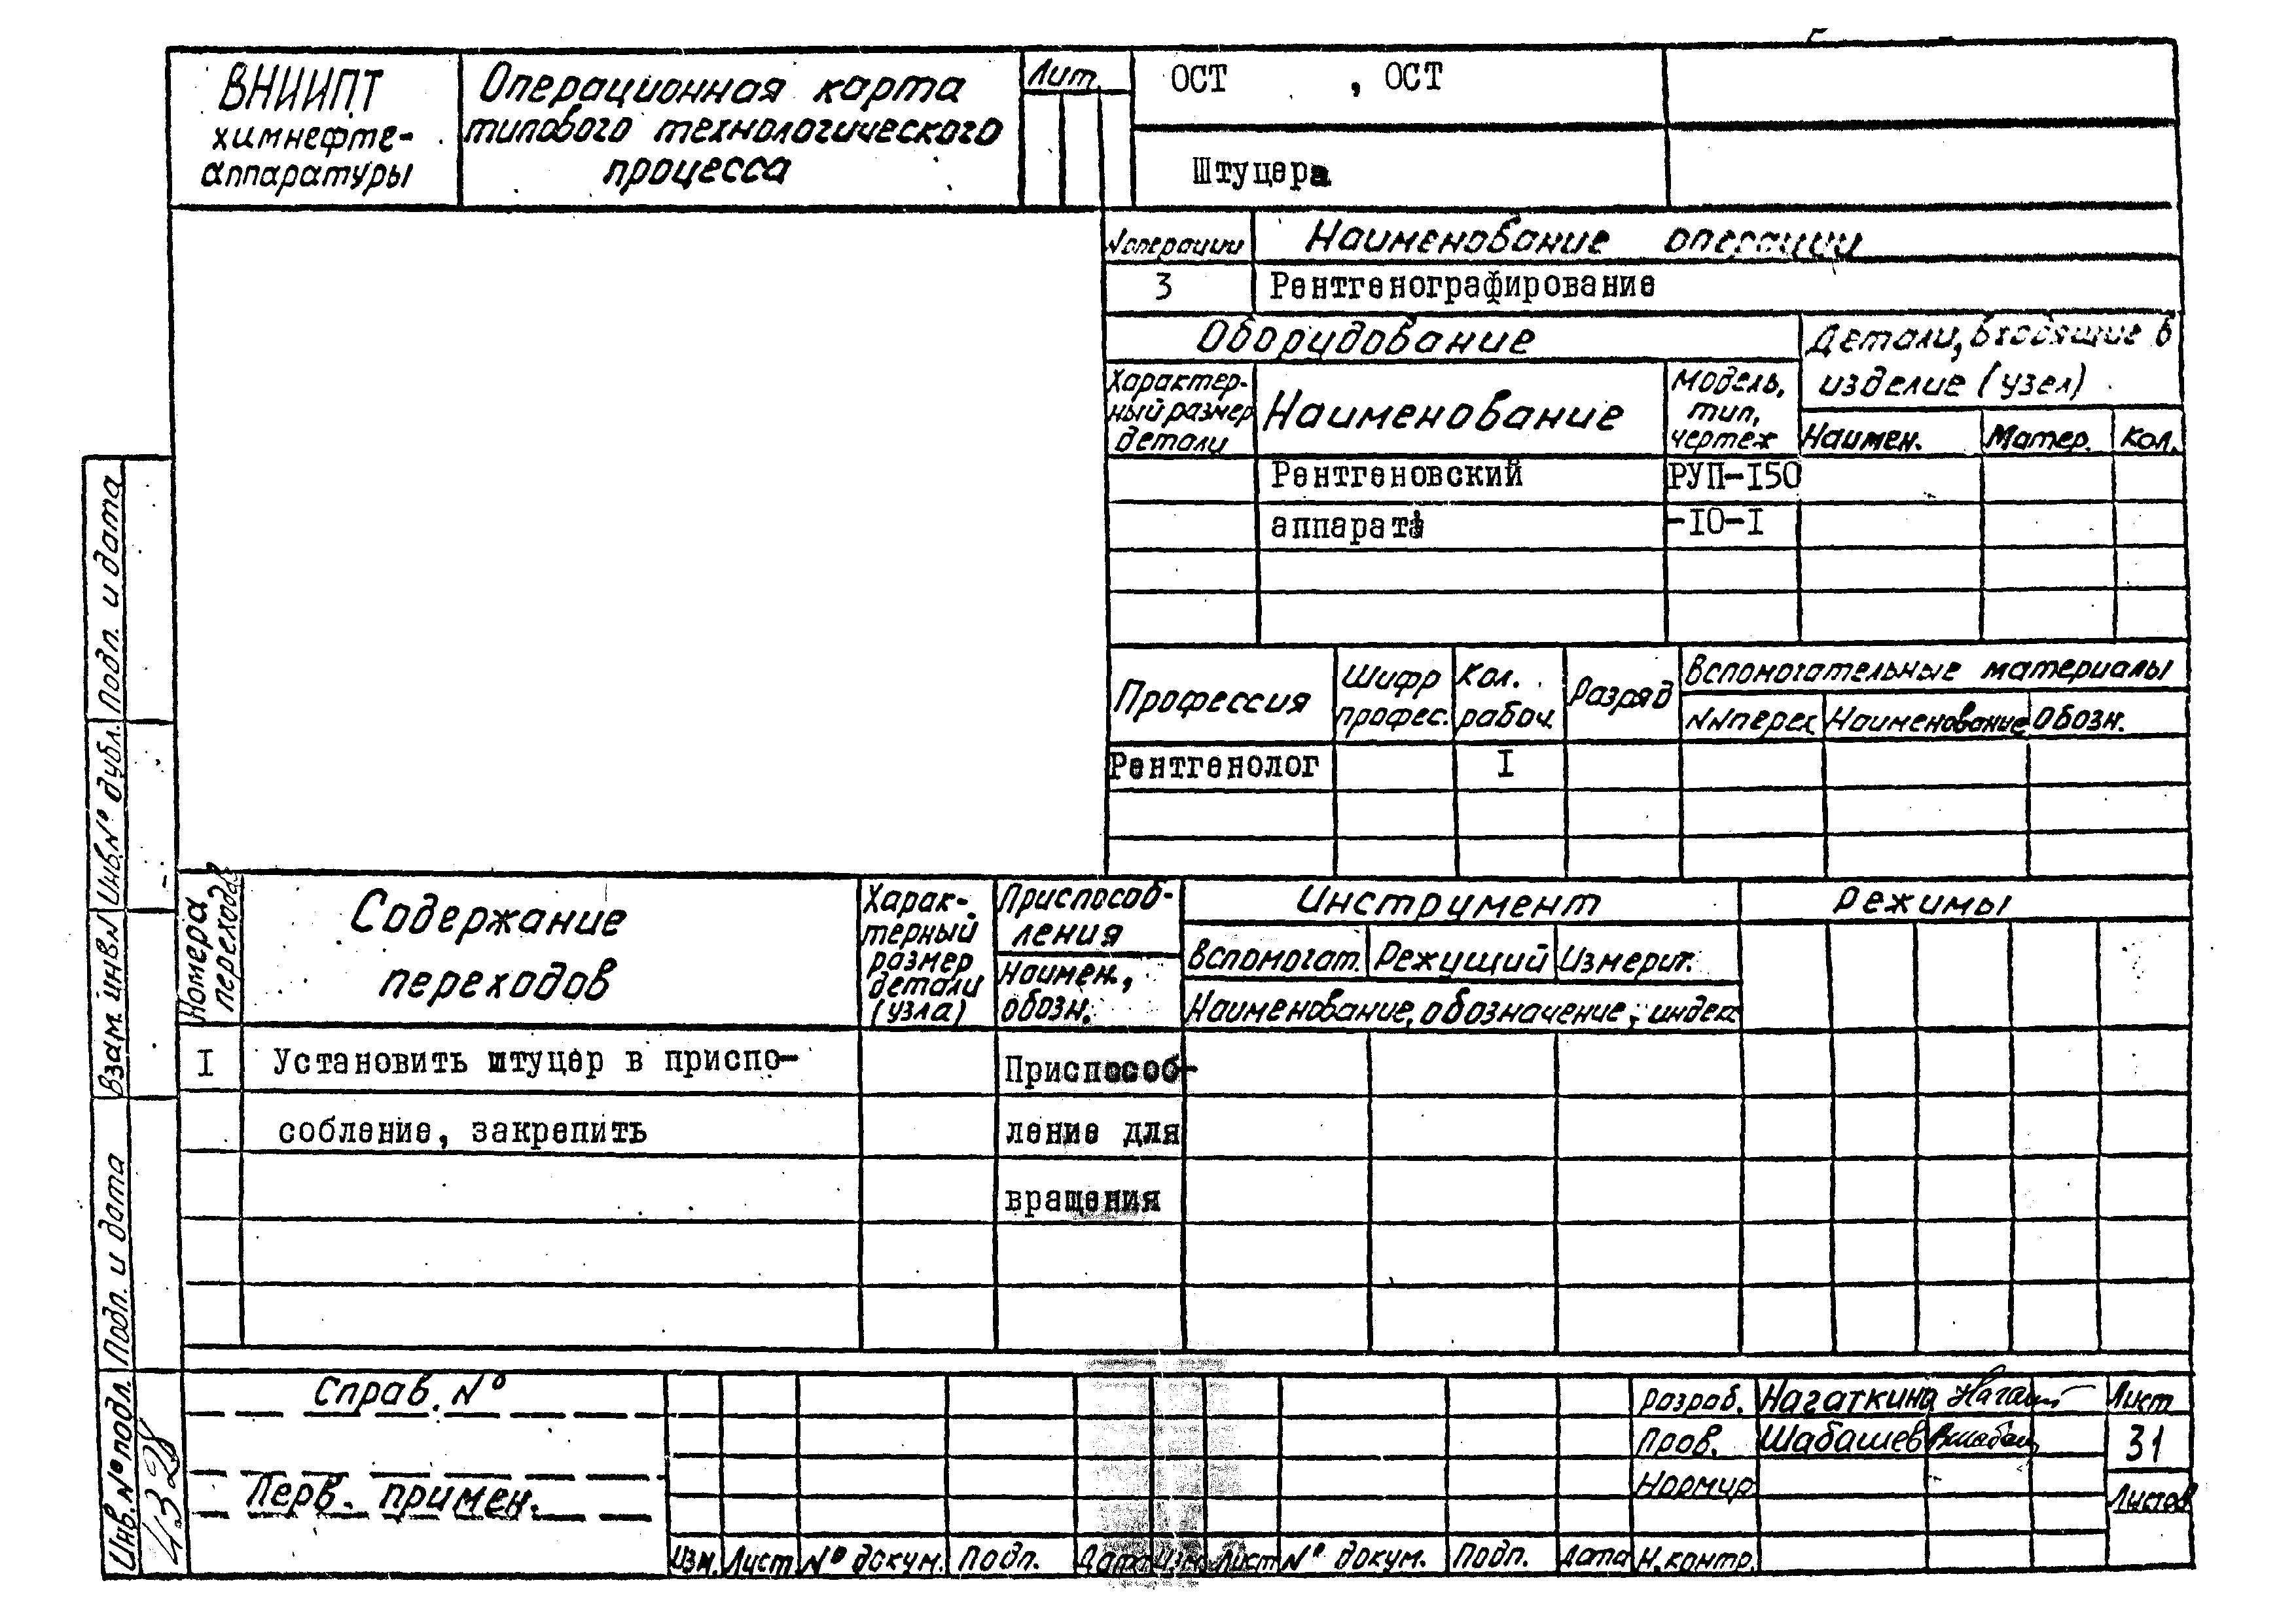 ВНИИПТ
химнефте-
аппаратуры
Операционная карта
типового технологического
процесса
Лит.
ОСТ , ОСТ
Штуцера
№операции
Наименование операции
3
Рентгенографирование
Оборудование
Детали, входящие в
изделие (узел)
Характер-
ный размер
детали
Наименование
Модель,
тип,
чертеж
Наимен.
Матер.
Кол.
Рентгеновский
РУП-I50
аппарат
-I0-I
Профессия
Шифр
профес.
Кол.
рабоч.
Разряд
Вспомогательные материалы
NNперех
Наименование
Обозн.
Рентгенолог
I
Номера
переходов
Содержание
переходов
Харак-
терный
размер
детали
(узла)
Приспособ-
ления
Наимен.,
обозн.
Инструмент
Режимы
Вспомогат.
Режущий
Измерит.
Наименование, обозначение, индекс
I
Установить штуцер в приспо-
Приспособ-
собление, закрепить
ление для
вращения
Подп. и дата
Инв.№ дубл.
Взам. инв №
Подп. и дата
Инв. № подл.
Справ. №
Перв. примен.
Изм.
Лист
№ докум.
Подп.
Дата
Изм.
Лист
№ докум.
Подп.
Дата
Разраб.
Нагаткина
Пров.
Шабашев
Нормир
Н.контр.
Лист
31
Листов